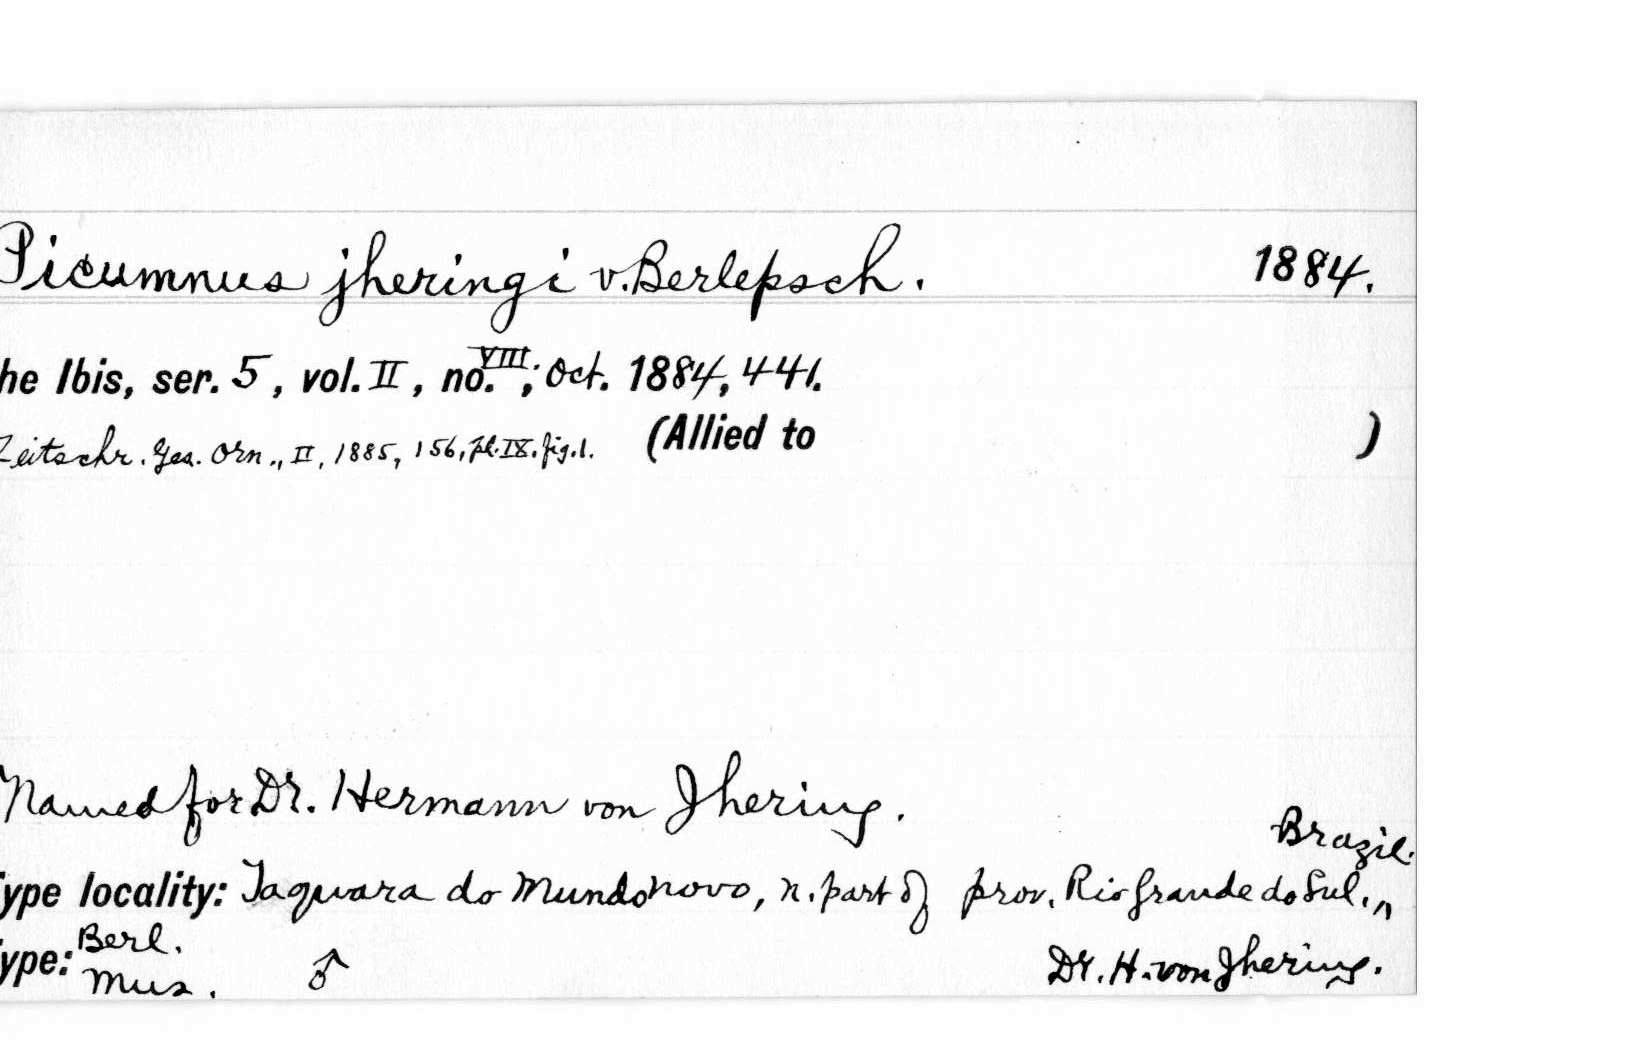 Picumnus jheringi v.Berlepsch. 1884.
he Ibis, ser. 5, vol. II, no. VIII; Oct. 1884, 441.
Zeitschr. Ges. Orn., II, 1885, 156, pl. IX. fig. 1. (Allied to )
Named for Dr. Hermann von Jhering.
Brazil.
ype locality: Taquara do Mundo novo, n. part of prov. Rio Grande do Sul. ^
ype: Berl. Mus. ♂ Dr. H. von Jhering.